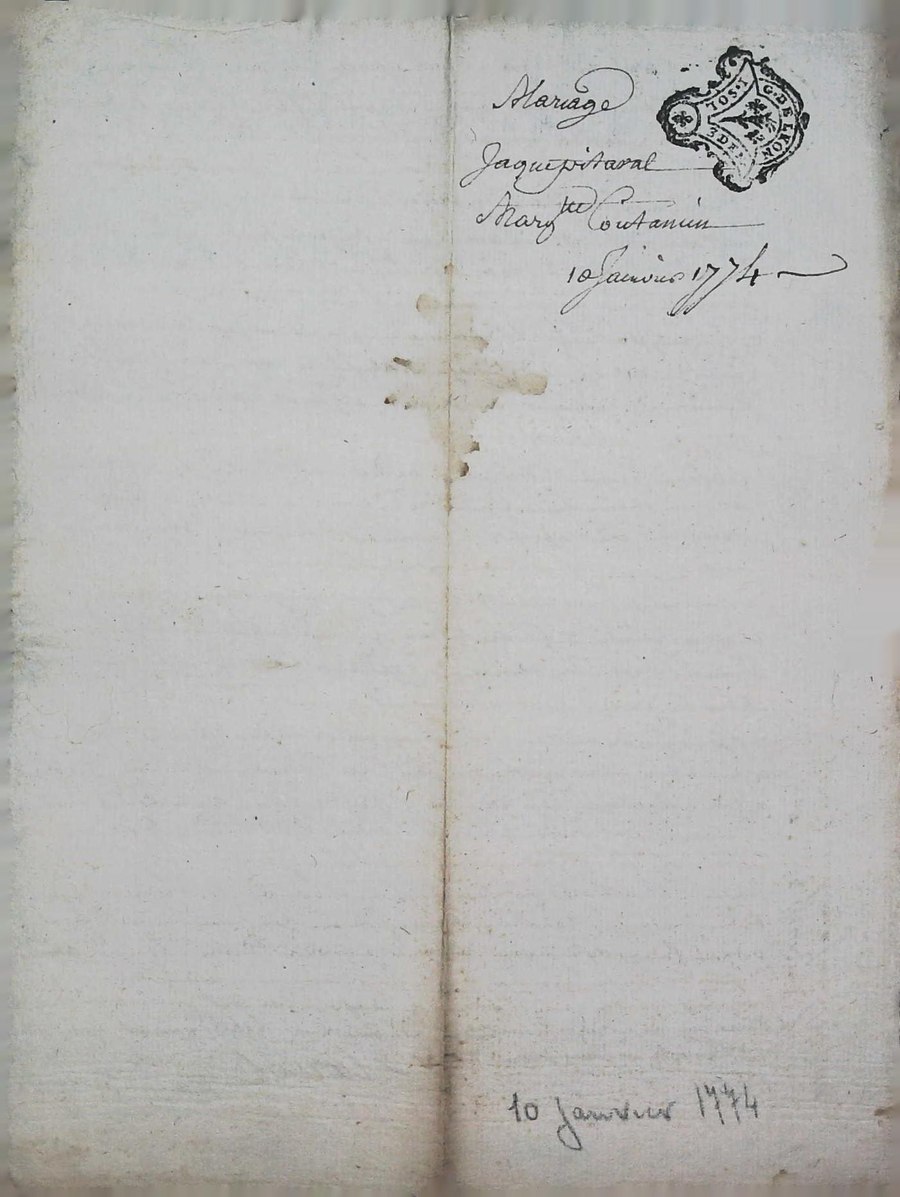 Mariage
Jaque pitaval
Marg.tte Coutanun
10 Janvier 1774
G. DE LYON
3 DE
10 Janvier 1774